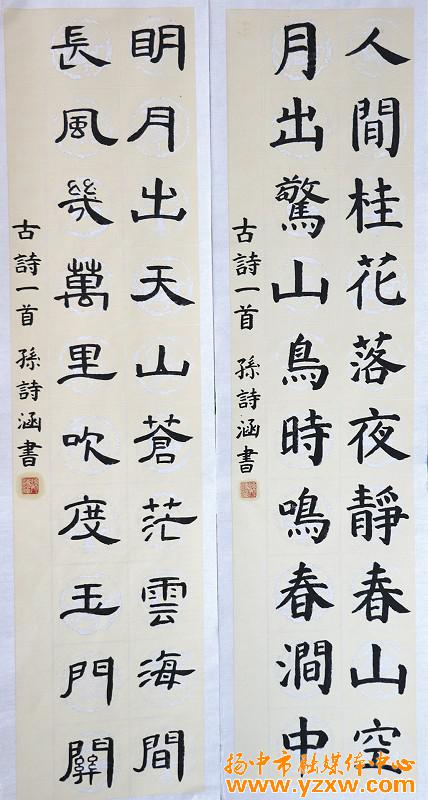 人間桂花落夜靜春山空
月出驚山鳥時鳴春澗中
古詩一首 孫詩涵書
眀月出天山蒼茫雲海間
長風幾萬里吹度玉門關
古詩一首 孫詩涵書
扬中市融媒体中心
www.yzxw.com